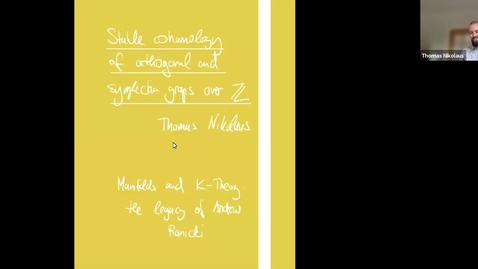 Stable cohomology
of orthogonal and
symplectic groups over ℤ
Thomas Nikolaus
Manifolds and K-Theory:
the legacy of Andrew
Ranicki
Thomas Nikolaus